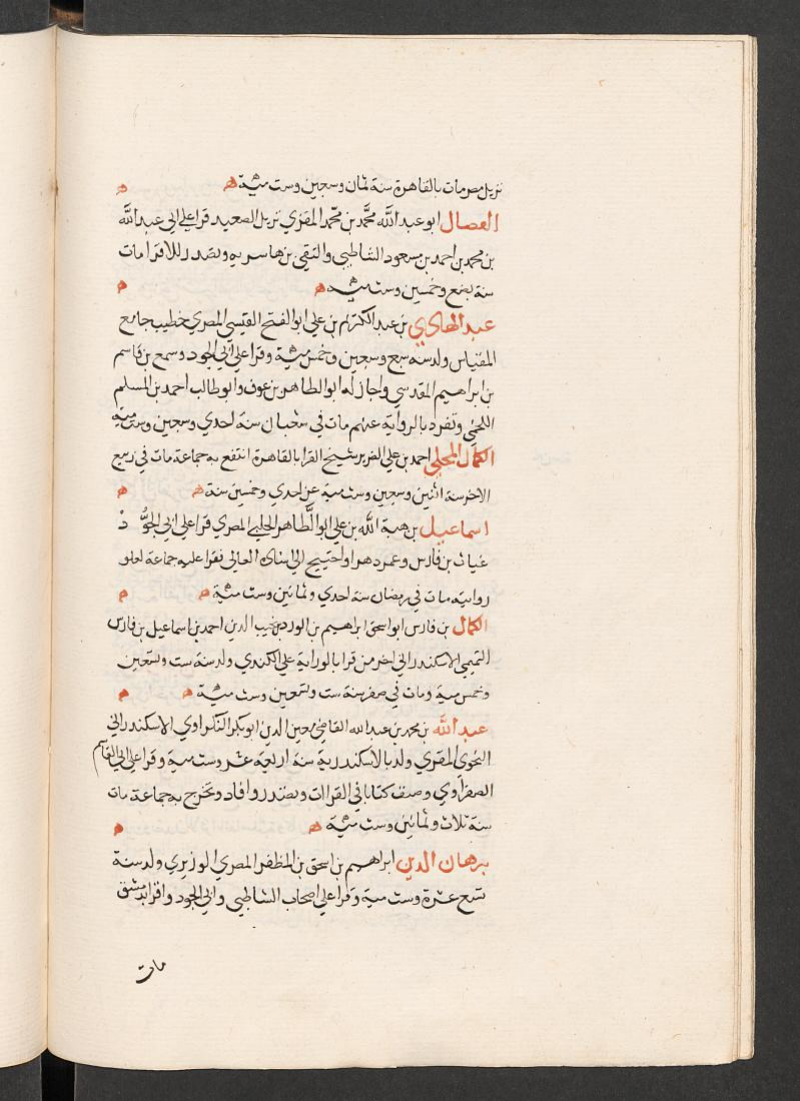 نزيل مصر مات بالقاهرة سنة ثمان وسبعين وست مئة ه ه
العصال ابو عبد الله محمد بن محمد المقري نزيل الصعيد قرا علي ابي عبد الله
بن محمد بن احمد بن مسعود الشاطبي والتقي بن ماسويه وتصدر للاقرا مات
سنة بضع وخمسين وست مئة ه ه
عبد الهادي بن عبد الكريم بن علي ابو الفتح القيسي المصري خطيب جامع
المقياس ولد سنة سبع وسبعين وخمس مئة وقرا علي ابي الجود وسمع من قاسم
بن ابراهيم المقدسي واجاز له ابو الطاهر بن عوف وابو طالب احمد بن المسلم
اللخمي وتفرد بالرواية عنهم مات في شعبان سنة احدي وسبعين وست مية
الكمال المحلي احمد بن علي الضرير شيخ القرا بالقاهرة انتفع به جماعة مات في ربيع
الاخر سنة اثنين وسبعين وست مية عن احدي وخمسين سنة ه ه
اسماعيل بن هبة الله بن علي ابو الطاهر المليجي المصري قرا علي ابي الجود
غياث بن فارس وعمر دهرا واحتيج الي اسناده العالي فقرا عليه جماعة لعلو
روايته مات في رمضان سنة احدي وثمانين وست مئة ه ه
الكمال بن فارس ابو اسحق ابراهيم بن الوزير نجيب الدين احمد بن اسماعيل بن فارس
التميمي الاسكندراني اخر من قرا بالرواية علي الكندي ولد سنة ست وتسعين
وخمس مية ومات في صفر سنة ست وسبعين وست مئة ه ه
عبد الله بن محمد بن عبد الله القاضي معين الدين ابو بكر النكزاوي الاسكندراني
النحوي المقري ولد بالاسكندرية سنة اربعة عشر وست مية وقرا علي ابي القاسم
الصفراوي وصنف كتابا في القراات وتصدر وافاد وتخرج به جماعة مات
سنة ثلاث وثمانين وست مئة ه ه
برهان الدين ابراهيم بن اسحق بن المظفر المصري الوزيري ولد سنة
تسع عشرة وست مية وقرا علي اصحاب الشاطبي وابي الجود واقرا بدمشق
مات